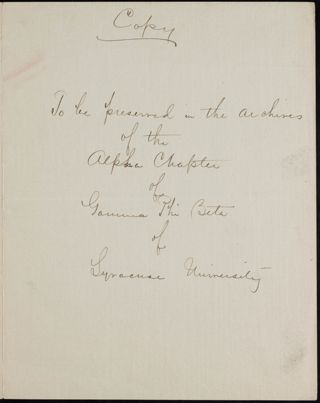 Copy
To be preserved in the archives
of the
Alpha Chapter
of
Gamma Phi Beta
of
Syracuse University